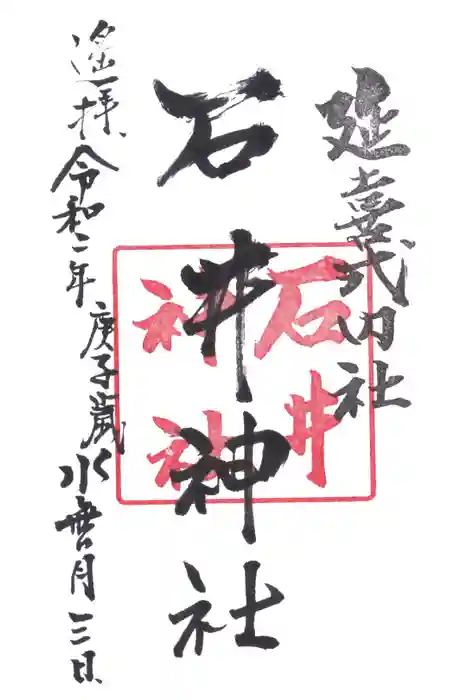 延喜式内社
石井神社
石井
神社
遥拝 令和二年 庚子歳 水無月 三日